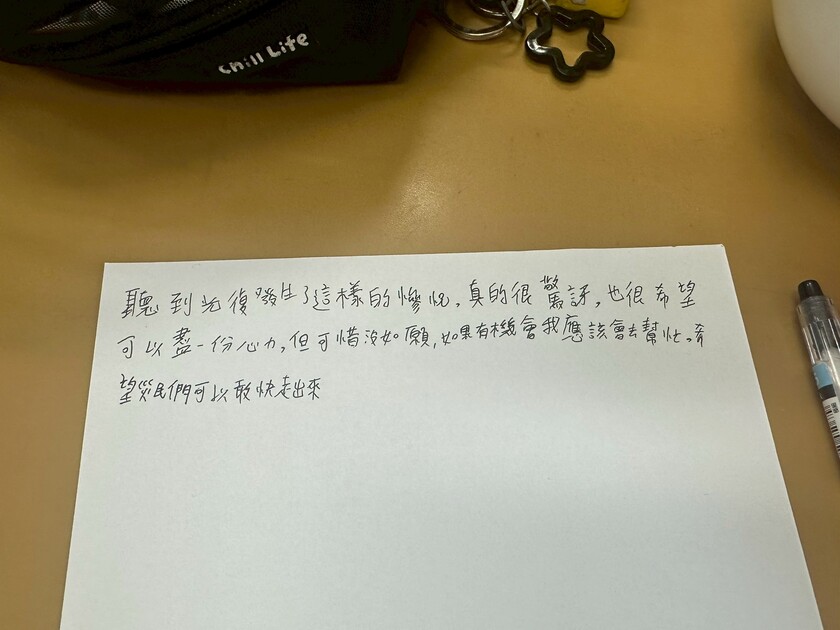 Chill Life
聽到光復發生了這樣的慘況,真的很驚訝,也很希望
可以盡一份心力,但可惜沒如願,如果有機會我應該會去幫忙。希
望災民們可以敢快走出來